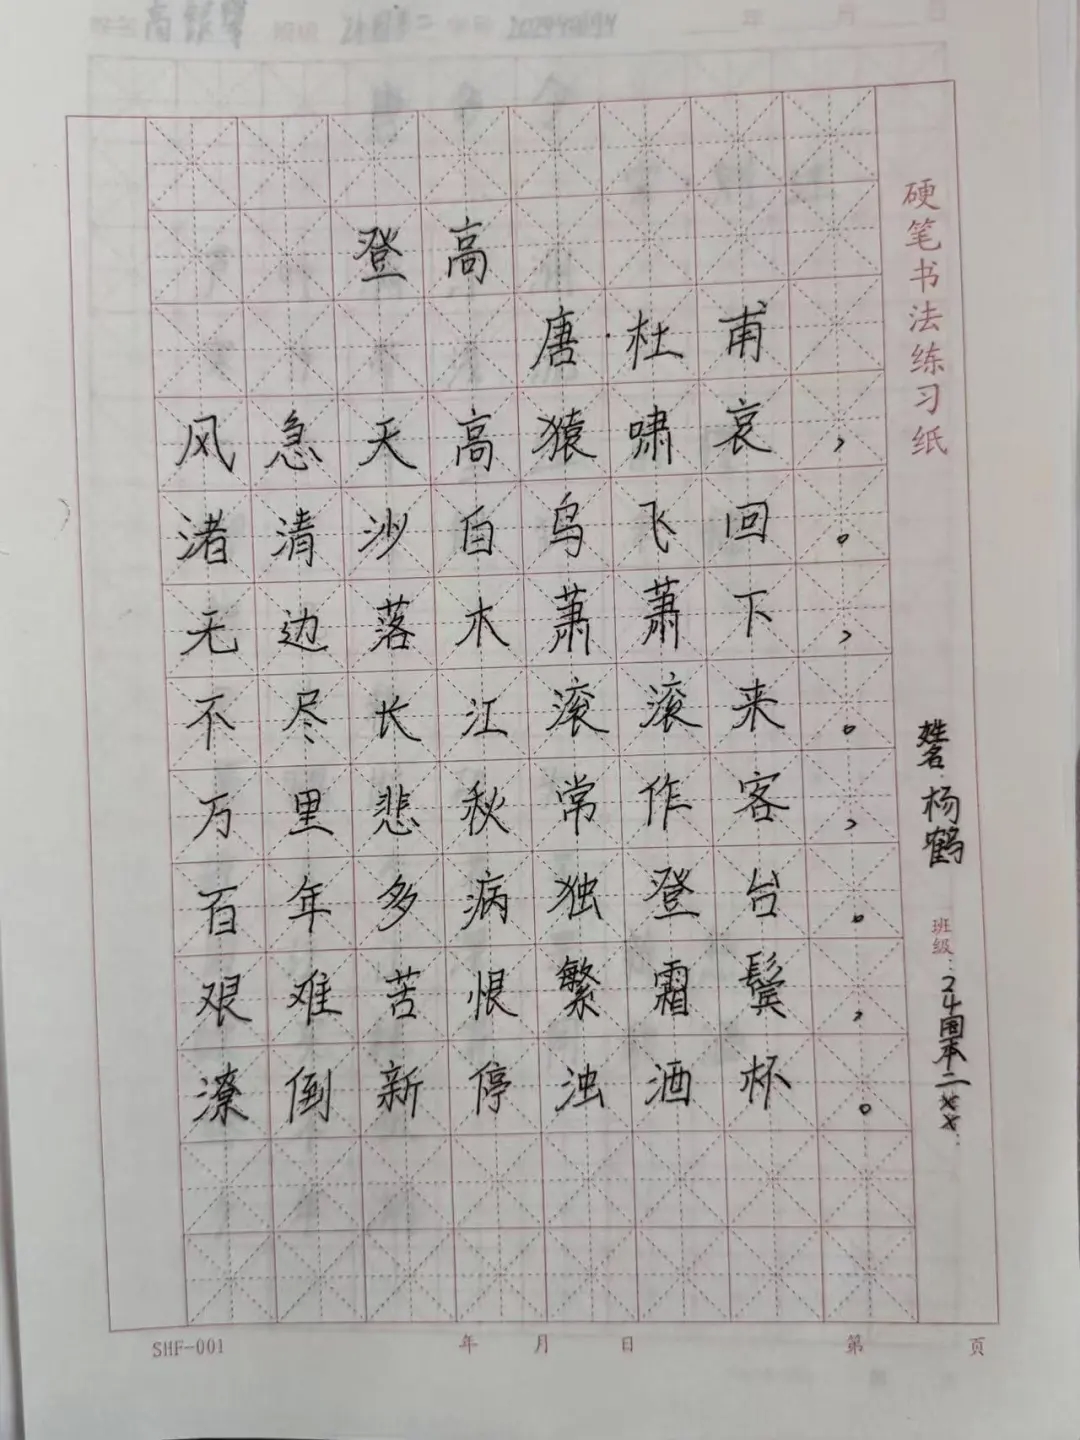 登高
唐·杜甫
风急天高猿啸哀，
渚清沙白鸟飞回。
无边落木萧萧下，
不尽长江滚滚来。
万里悲秋常作客，
百年多病独登台。
艰难苦恨繁霜鬓，
潦倒新停浊酒杯。
硬笔书法练习纸
姓名：杨鹤
班级：24国本二
SHF-001 年 月 日 第 页